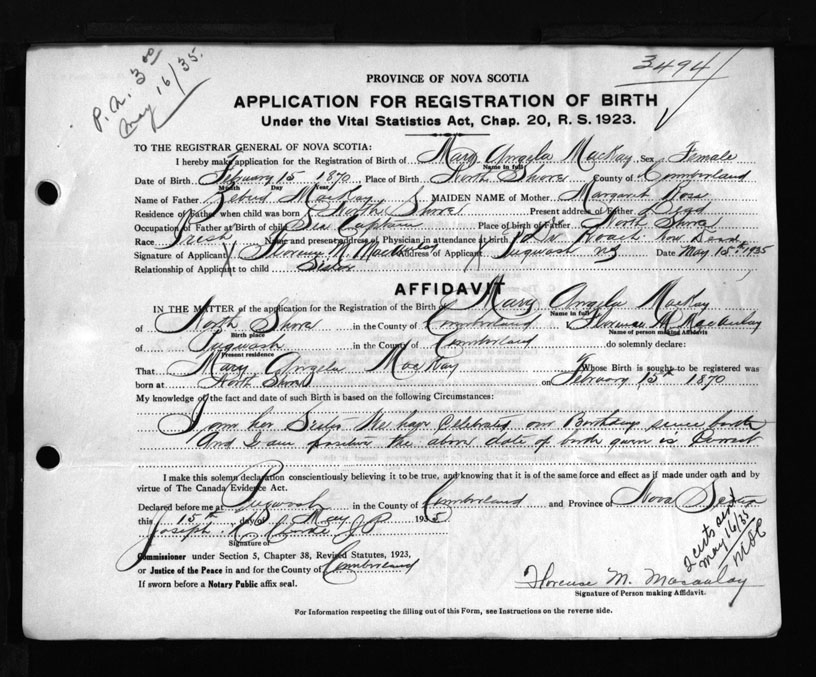 P.A. 3.00
May 16/35.
3494
PROVINCE OF NOVA SCOTIA
APPLICATION FOR REGISTRATION OF BIRTH
Under the Vital Statistics Act, Chap. 20, R. S. 1923.
TO THE REGISTRAR GENERAL OF NOVA SCOTIA:
I hereby make application for the Registration of Birth of Mary Angela MacKay Sex Female
Name in full
Date of Birth February 15 1870 Place of Birth North Shore County of Cumberland
Month Day Year
Name of Father MacKay MAIDEN NAME of Mother Margaret Ross
Residence of Father when child was born North Shore Present address of Father Dead
Occupation of Father at Birth of child Sea Captain Place of birth of Father North Shore
Race Name and present address of Physician in attendance at birth Dr Roach Now Dead
Signature of Applicant Florence M. Macaulay Address of Applicant Pugwash NS Date May 15th 1935
Relationship of Applicant to child Sister
AFFIDAVIT
IN THE MATTER of the application for the Registration of the Birth of Mary Angela MacKay
Name in full
of North Shore in the County of Cumberland Florence M Macaulay
Birth place Name of person making Affidavit
of Pugwash in the County of Cumberland do solemnly declare:
Present residence
That Mary Angela MacKay Whose Birth is sought to be registered was
born at North Shore on February 15th 1870
My knowledge of the fact and date of such Birth is based on the following Circumstances:
I am her Sister We have Celebrated our Birthdays since birth
and I am positive the above date of birth given is Correct
I make this solemn declaration conscientiously believing it to be true, and knowing that it is of the same force and effect as if made under oath and by
virtue of The Canada Evidence Act.
Declared before me at Pugwash in the County of Cumberland and Province of Nova Scotia
this 15th day of May 1935
Joseph J P
Signature of
Commissioner under Section 5, Chapter 38, Revised Statutes, 1923,
or Justice of the Peace in and for the County of Cumberland
If sworn before a Notary Public affix seal.
2 certs
May 16/35
Florence M. Macaulay
Signature of Person making Affidavit.
For Information respecting the filling out of this Form, see Instructions on the reverse side.